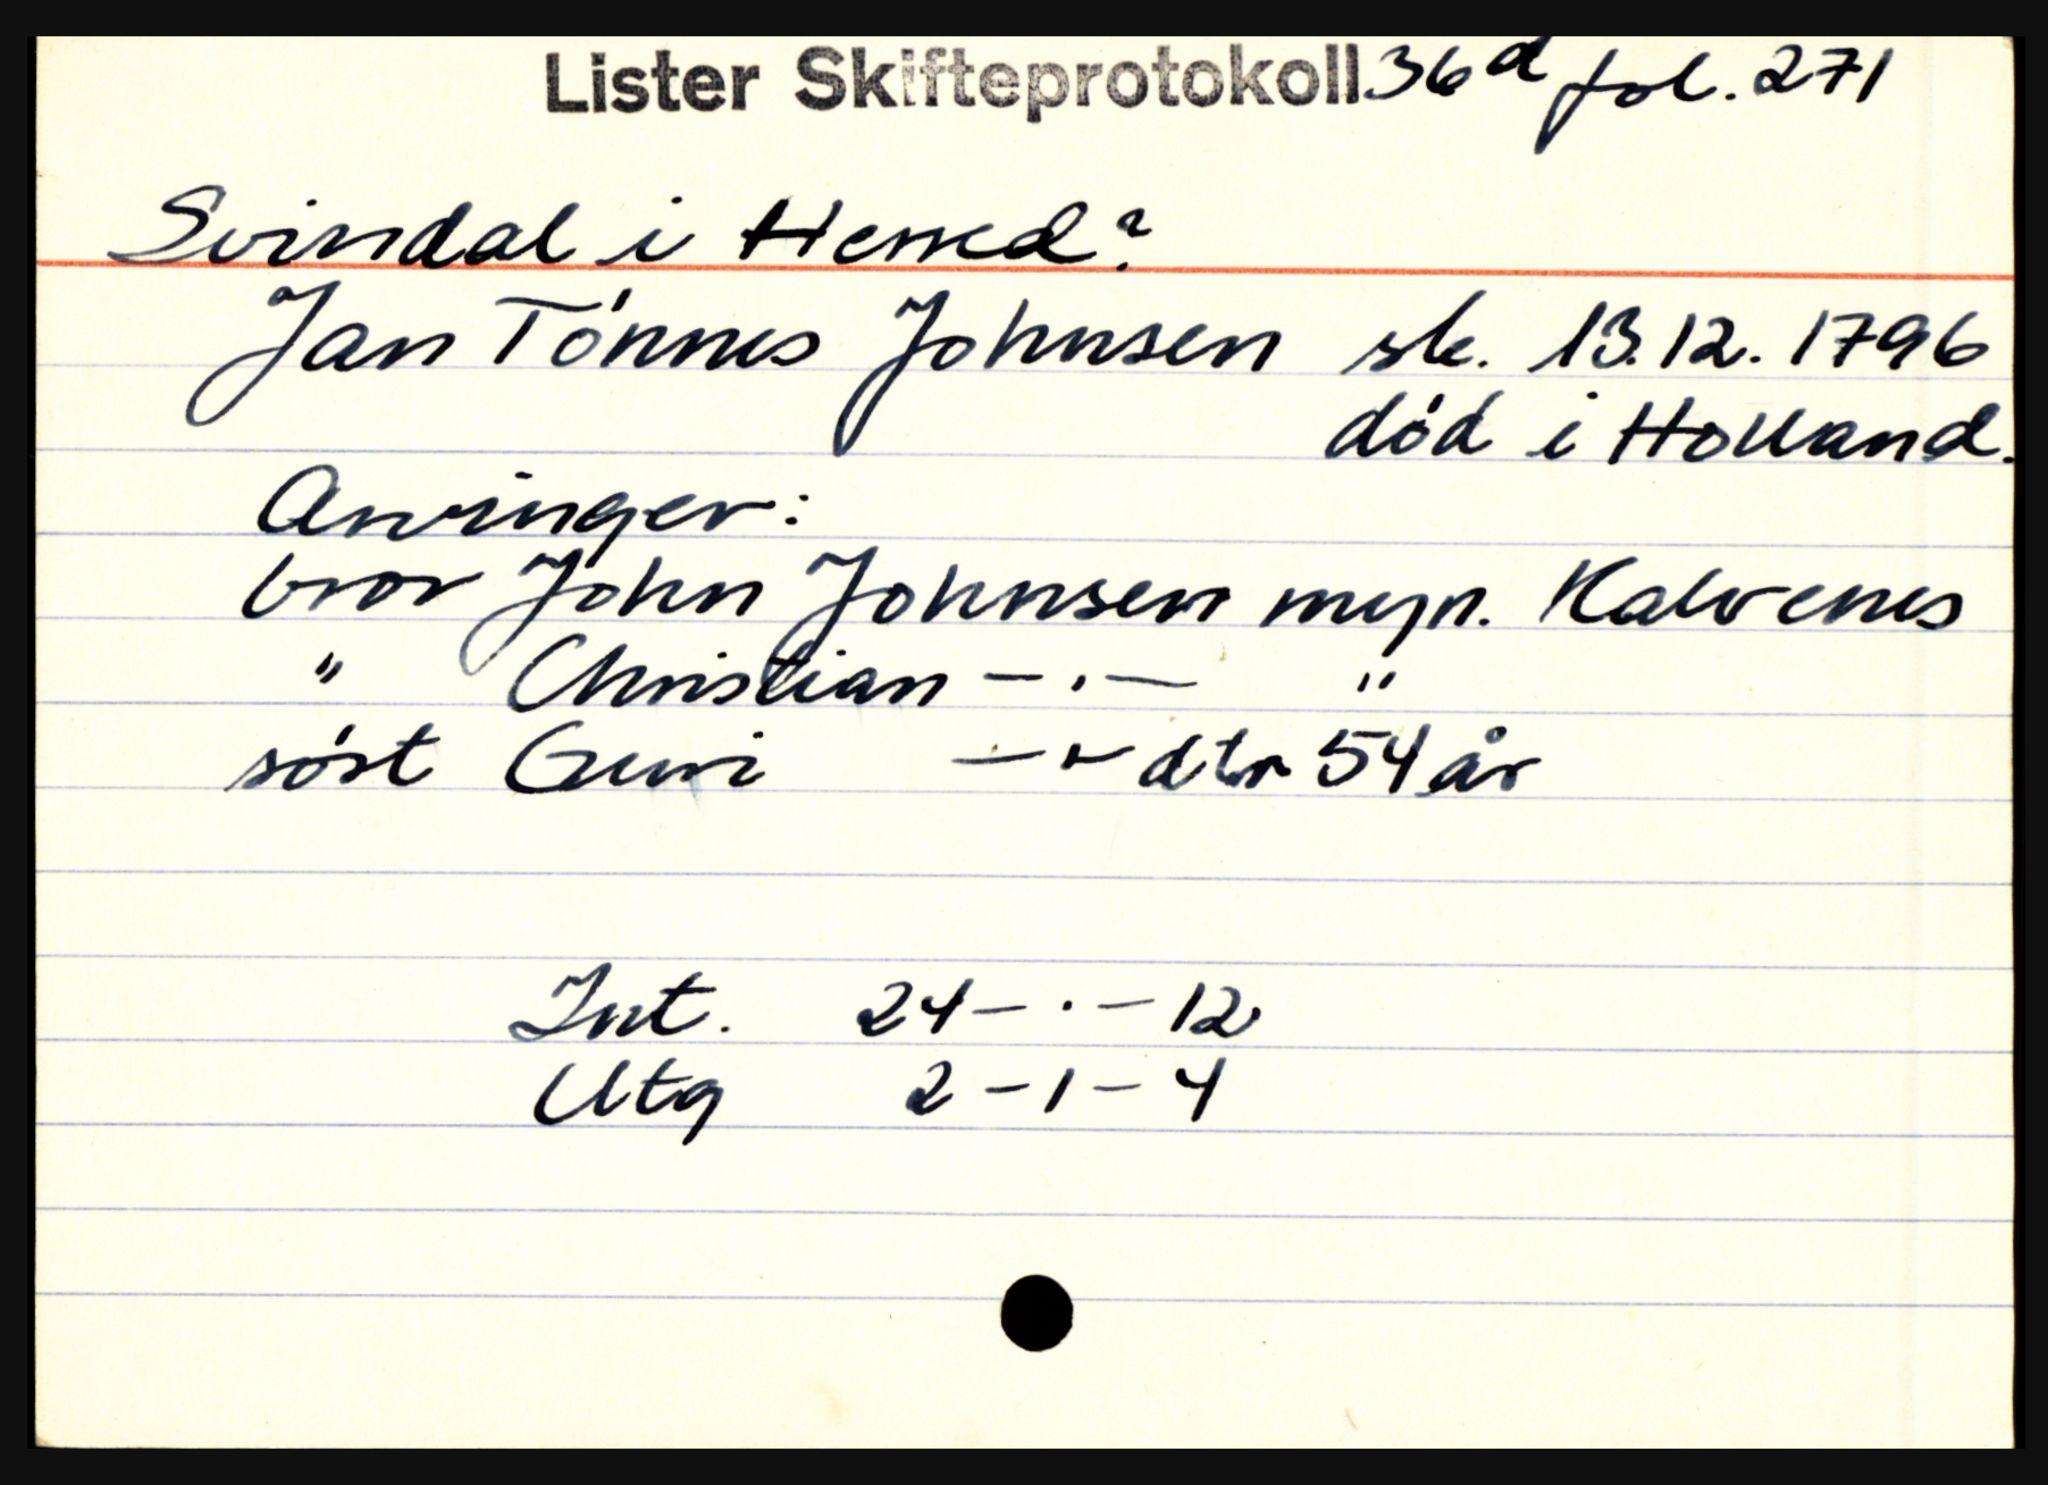 Lister Skifteprotokoll 36d fol. 271
Svindal i Herred?
Jan Tönnes Johnsen sk. 13.12.1796
död i Holland.
Arvinger:
bror John Johnsen myn. Kalvenes
" Christian — . — "
söst Guri — " — dtr 54 år
Int. 24 — . — 12
Utg 2 — 1 — 4